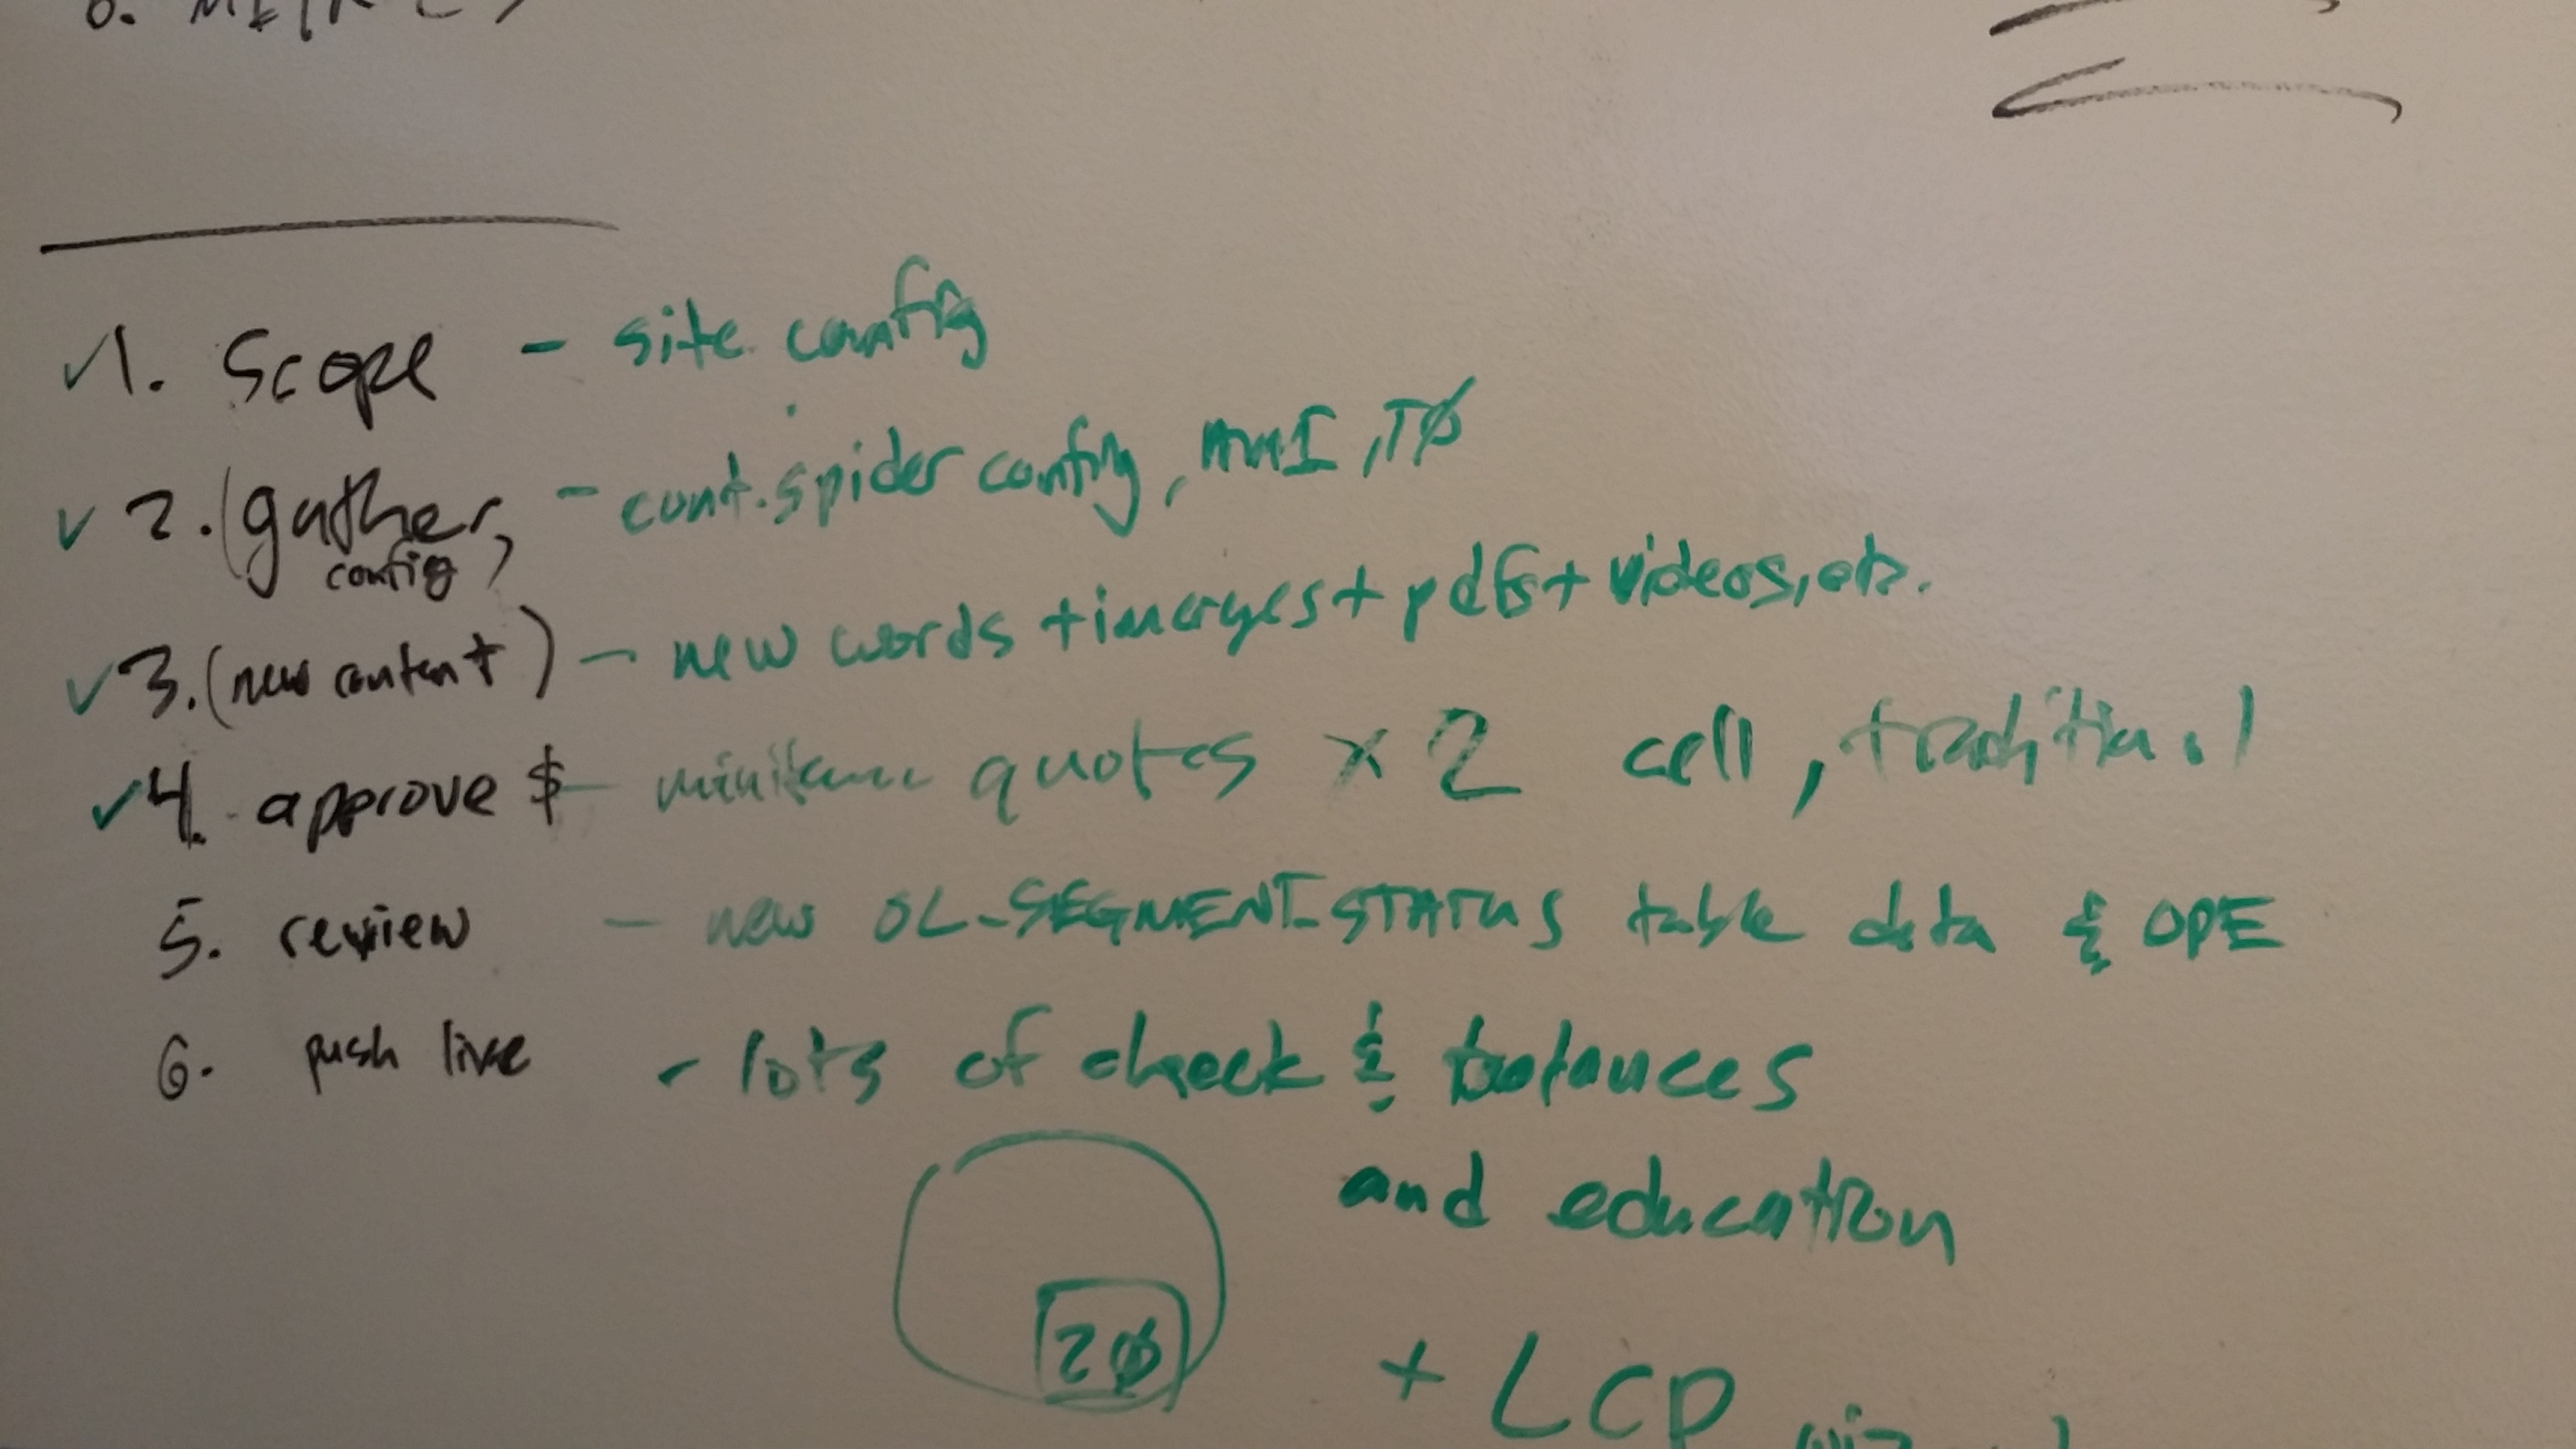 ✓1. Scope - site config
✓2. (gather, - cont. spider config, MMI, TØ
config)
✓3. (new content) - new words + images + pdfs + videos, etc.
✓4. approve $ - quotes x 2 cell, traditional
5. review - new OL_SEGMENT_STATUS table data & OPE
6. push live - lots of check & balances
and education
2Ø
+ LCP